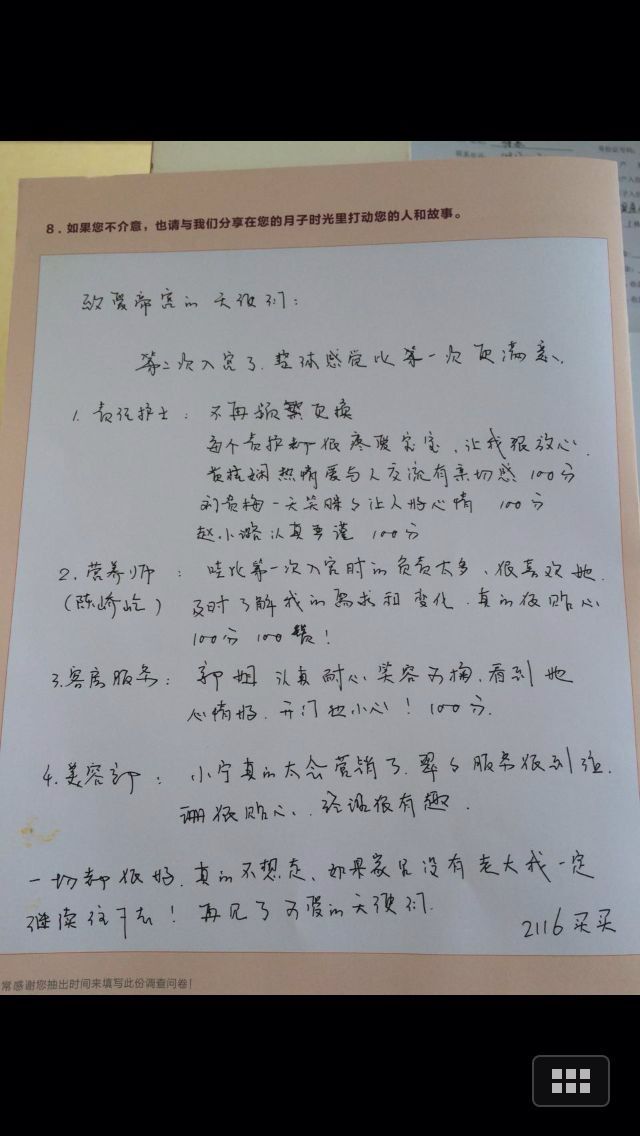 8. 如果您不介意，也请与我们分享在您的月子时光里打动您的人和故事。
致爱帝宫的天使们：
第二次入宫了.整体感觉比第一次更满意.
1. 责任护士： 不再频繁更换
每个责护都很疼爱宝宝.让我很放心.
热情爱与人交流有亲切感 100分
刘贵梅一天笑眯々让人好心情 100分
赵小潞认真严谨 100分
2. 营养师 ： 哇比第一次入宫时的负责太多、很喜欢她.
(陈峤屹) 及时了解我的需求和变化.真的很贴心
100分 100赞！
3.客房服务： 郭姐 认真耐心笑容可掬.看到她
心情好.开门也小心！ 100分.
4.美容部 ： 小宁真的太会营销了.翠々服务很到位.
珊很贴心.、经络很有趣.
一切都很好.真的不想走、如果家里没有老大我一定
继续住下去！ 再见了可爱的天使们.
2116 买买
常感谢您抽出时间来填写此份调查问卷！